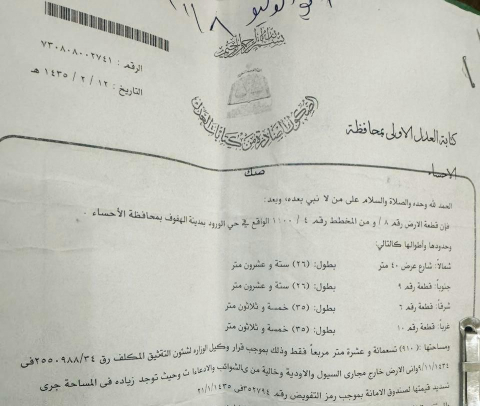 بسم الله الرحمن الرحيم
الرقم : ٧٣٠٨٠٨٠٠٢٧٤١
التاريخ : ١٢ / ٢ / ١٤٣٥ هـ
كتابة العدل الاولى بمحافظة
الاحساء
صك
الحمد لله وحده والصلاة والسلام على من لا نبي بعده، وبعد:
فإن قطعة الارض رقم ٨ / و من المخطط رقم ٤ / ١١٠٠ الواقع في حي الورود بمدينة الهفوف بمحافظة الأحساء .
وحدودها وأطوالها كالتالي:
شمالاً: شارع عرض ٤٠ متر بطول: (٢٦) ستة و عشرون متر
جنوباً: قطعة رقم ٩ بطول: (٢٦) ستة و عشرون متر
شرقاً: قطعة رقم ٦ بطول: (٣٥) خمسة و ثلاثون متر
غرباً: قطعة رقم ١٠ بطول: (٣٥) خمسة و ثلاثون متر
ومساحتها :( ٩١٠) تسعمائة و عشرة متر مربعاً فقط وذلك بموجب قرار وكيل الوزاره لشئون التوثيق المكلف رق ٢٥٥٠٩٨٨/٣٤فى
٩/١١/١٤٣٤وانى الارض خارج مجارى السيول والاودية وخالية من الشوائب والادعاءات وحيث توجد زياده فى المساحة جرى
تسديد قيمتها لصندوق الامانة بموجب رمز التفويض رقم ٣٠٢٧٩٤فى ٢١/١/١٤٣٥